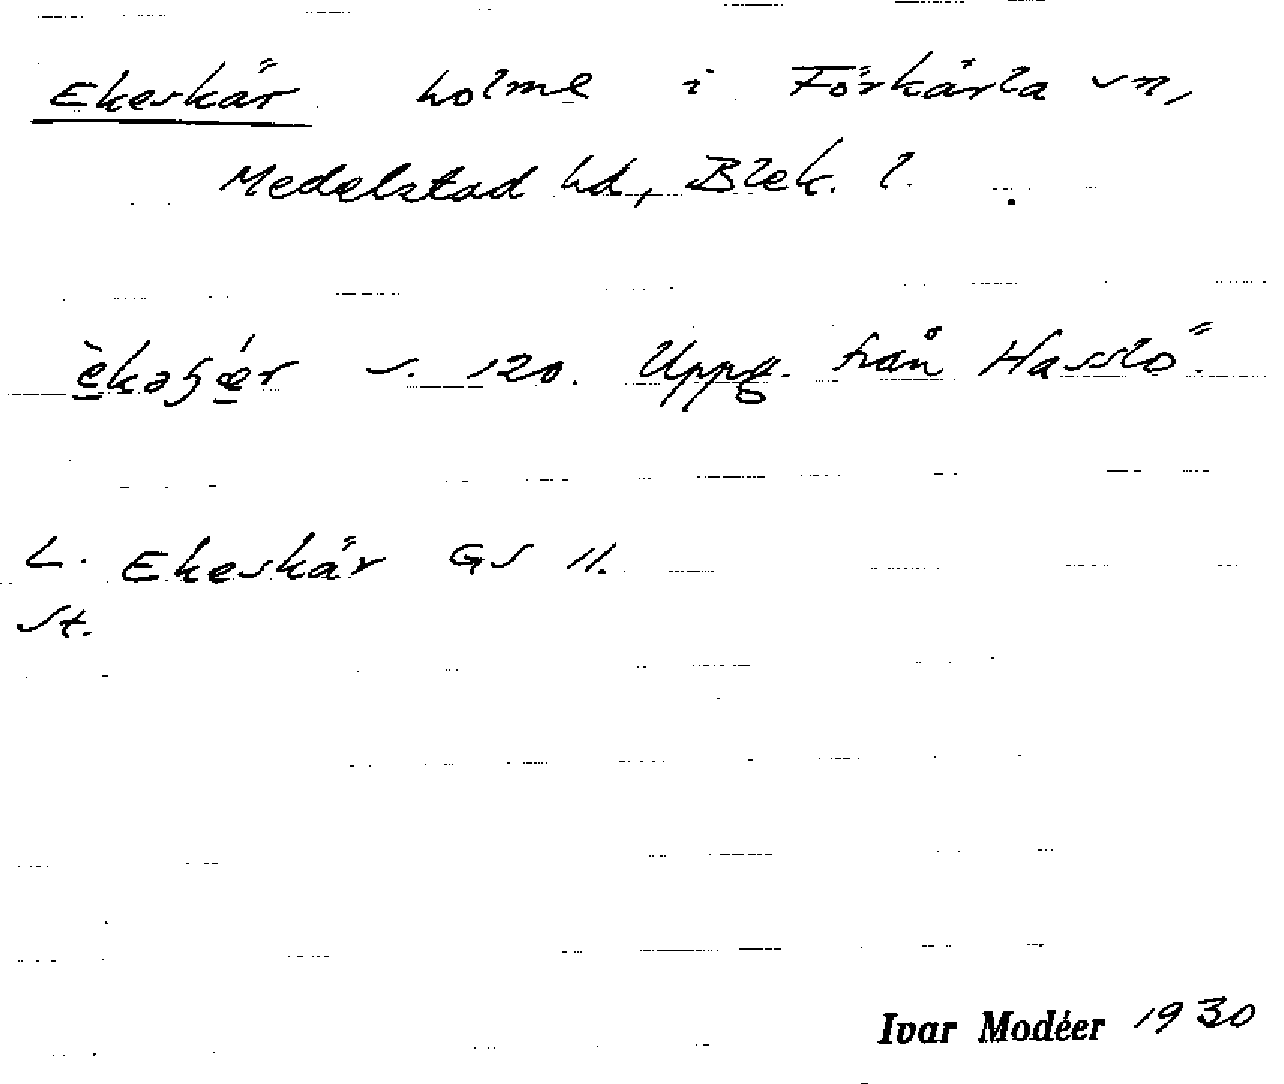 Ekeskär holme i Förkärla sn,
Medelstad hd, Blek. l.
s. 120. Uppg. från Hasslö.
L. Ekeskär GS 11.
St.
Ivar Modéer 1930